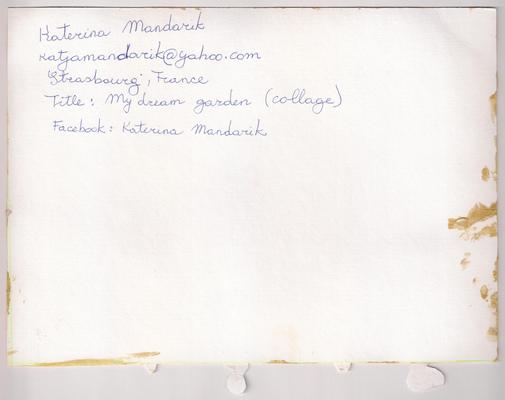 Katerina Mandarik
katjamandarik@yahoo.com
Strasbourg, France
Title: My dream garden (collage)
Facebook: Katerina Mandarik